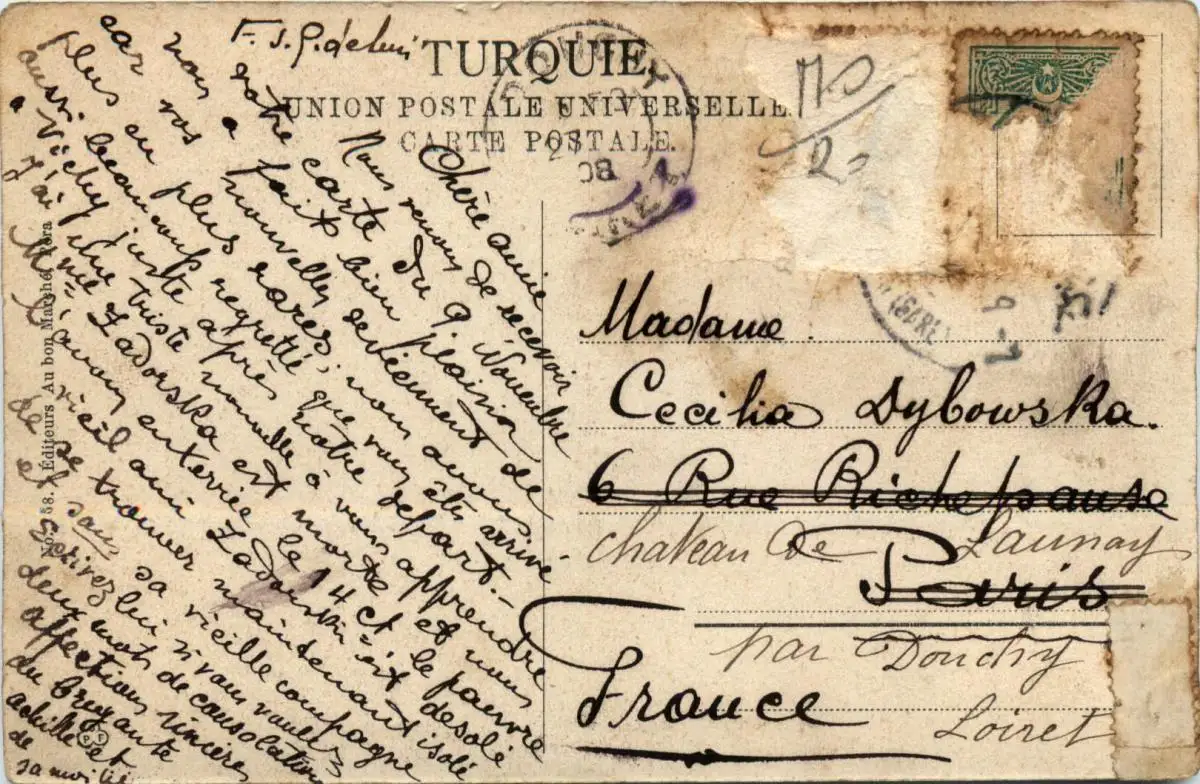 TURQUIE
UNION POSTALE UNIVERSELLE
CARTE POSTALE.
Chère amie
Nous venons de recevoir
votre carte du 9 Novembre
nous a fait bien plaisir
car vos nouvelles deviennent de
plus en plus rares; nous avons
aussi beaucoup regretté que vous êtes arrivé
à Vichy juste après notre départ.-
J'ai une triste nouvelle à vous apprendre
Mme Zadorska est morte et nous
l'avons enterrée le 14 ct le pauvre
vieil ami Zadorski est désolé
de se trouver maintenant isolé
et sans sa vieille compagne
Ecrivez lui si vous voulez
deux mots de consolation
affections sincères
du
de
sa moitié
No. 88. Éditeurs Au bon Marché, Péra
08
MS
20
Madame
Cecilia Dybowska.
6 Rue Richepanse
chateau de Launay
Paris
par Douchy
France
Loiret